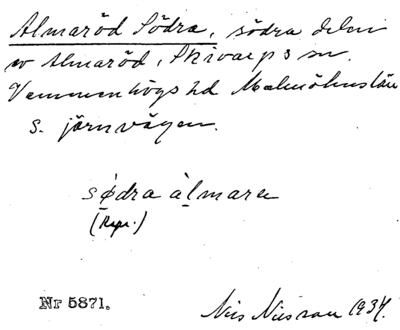 Almaröd Södra, södra delen
av Almaröd, Skivarps sn.
Vemmenhögs hd Malmöhus län
S. järnvägen.
södra àlmarø
(Repr.)
Nr 5871.
Nils Nilsson 1934.